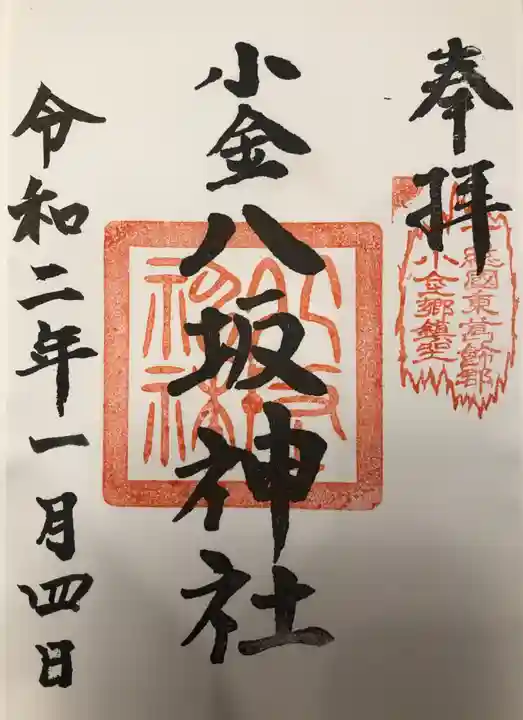 奉拝
下総國東葛飾郡
小金郷鎮座
小金八坂神社
令和二年一月四日